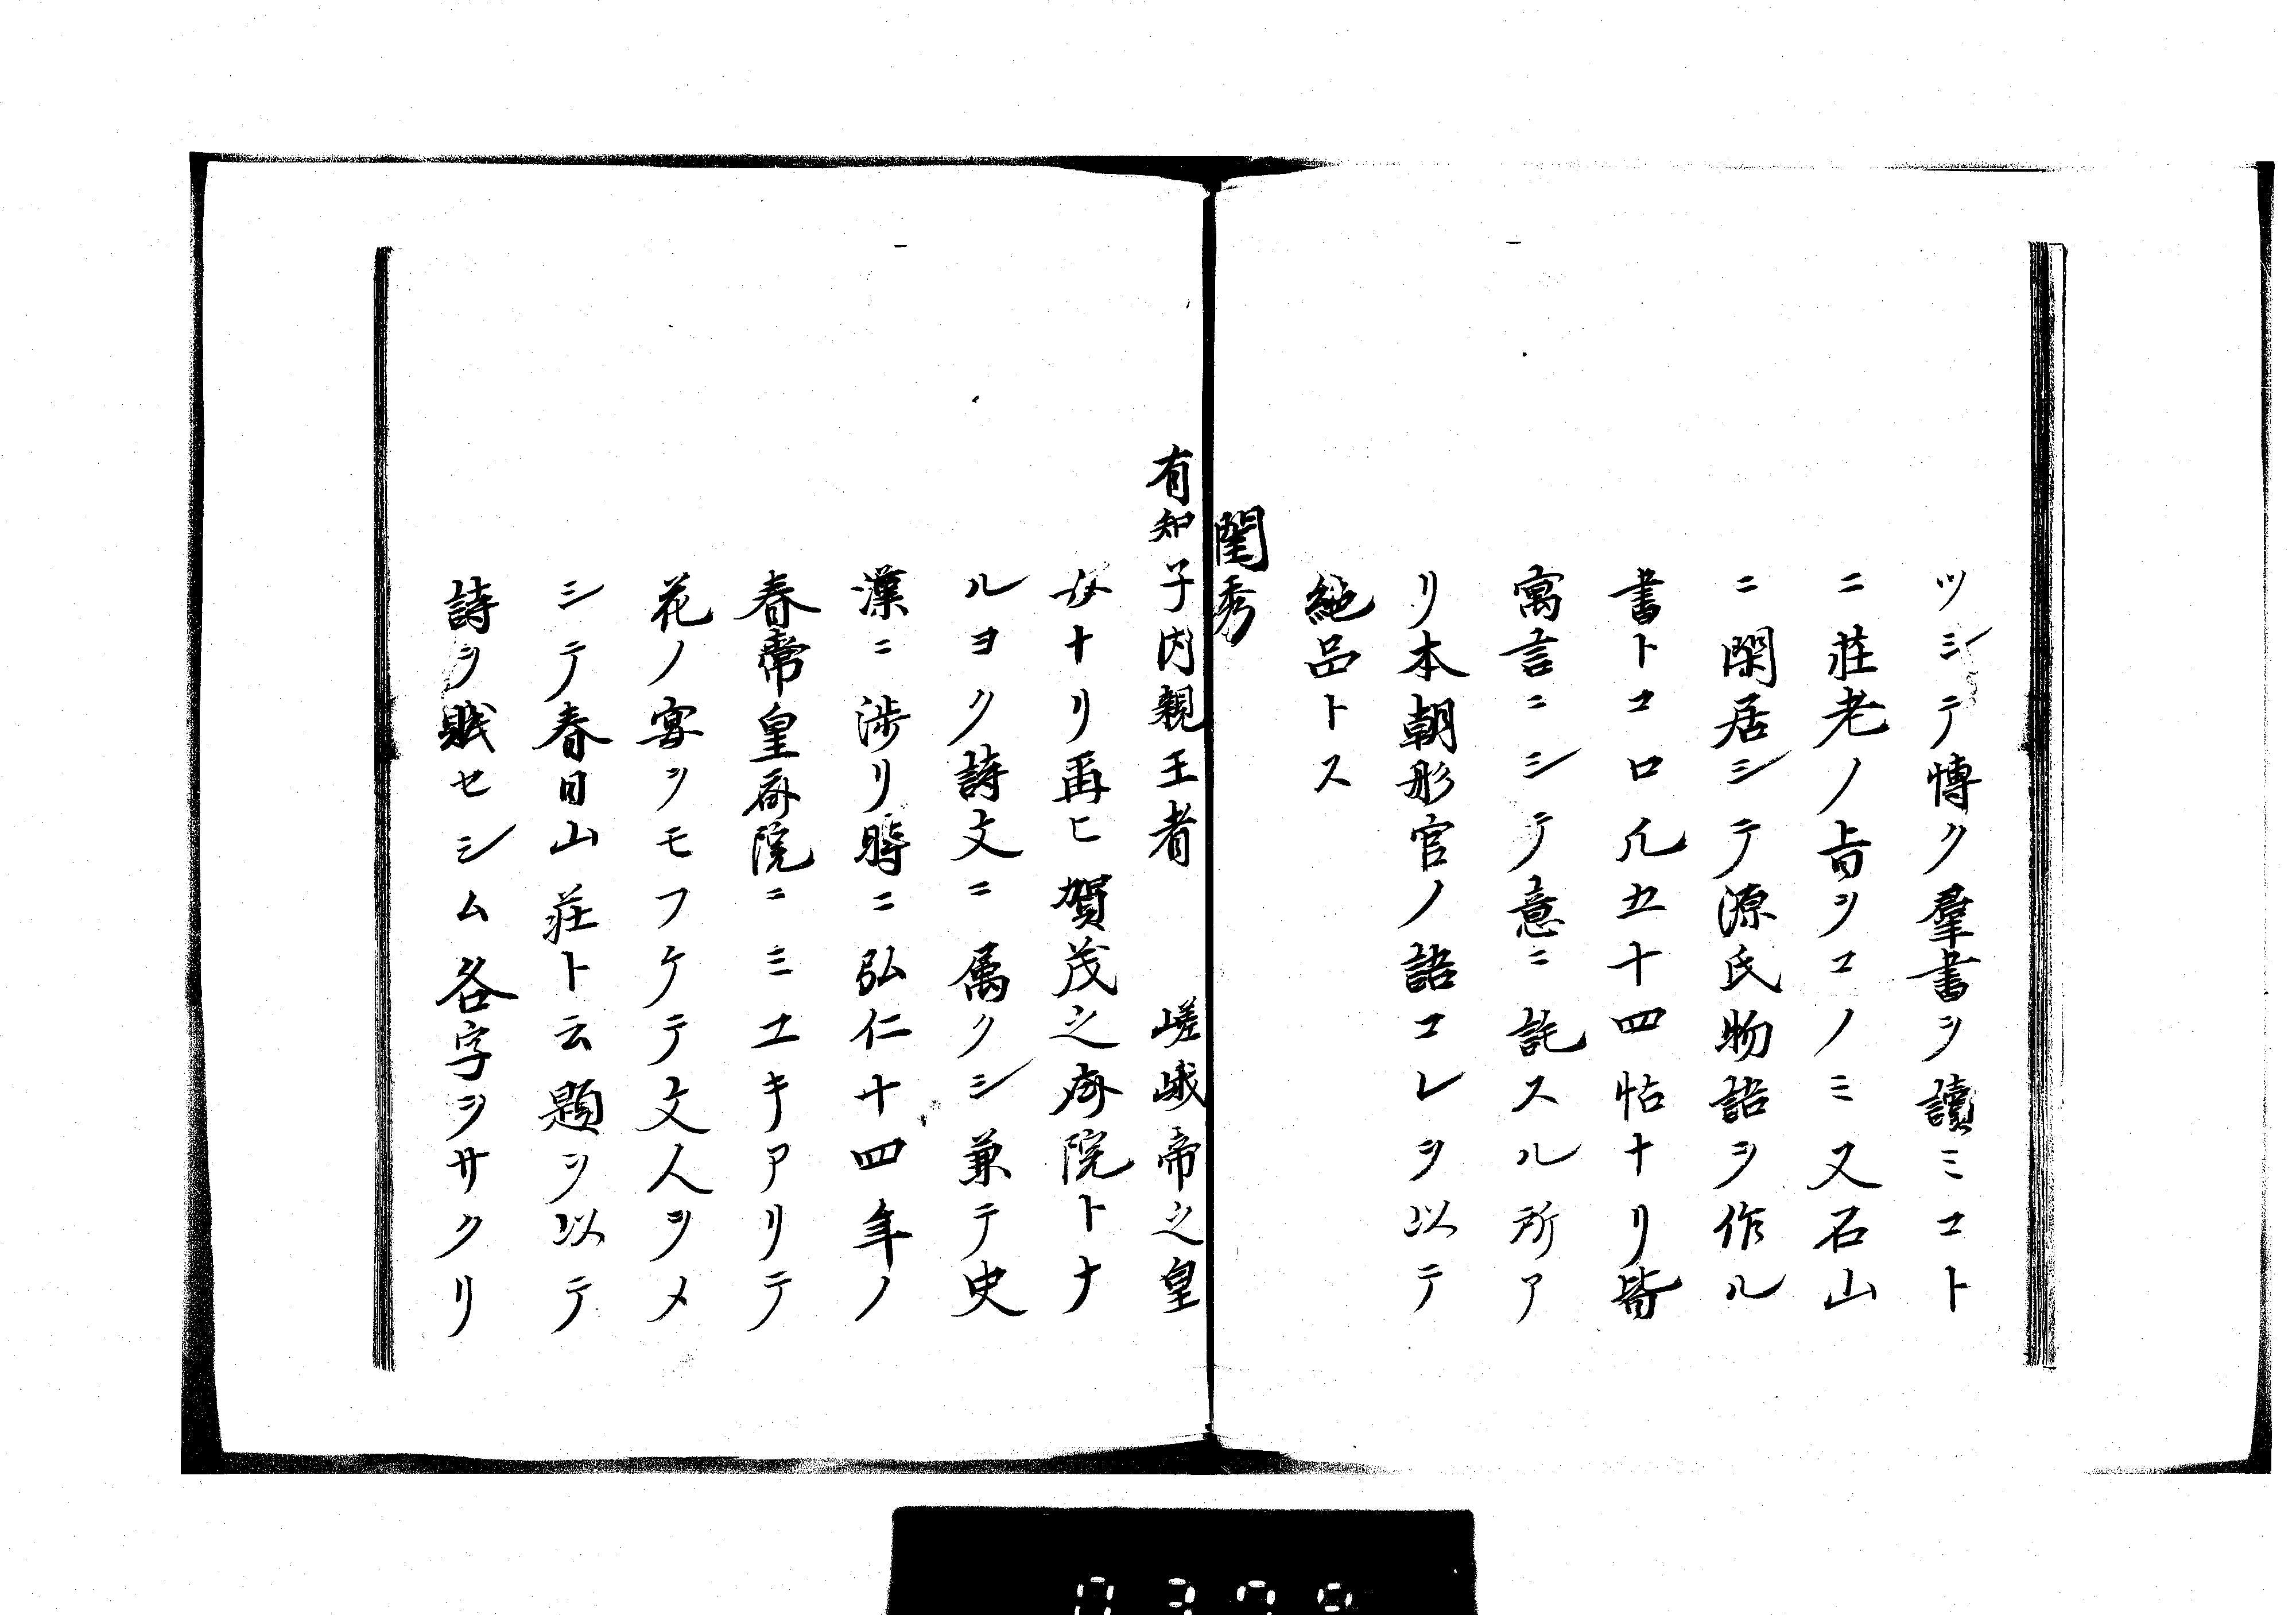 ツシテ博ク羣書ヲ讀ミコト
ニ莊老ノ旨ヲコノミ又石山
ニ閑居シテ源氏物語ヲ作ル
書トコロ凢五十四帖ナリ皆
寓言ニシテ意ニ託スル所ア
リ本朝形官ノ語コレヲ以テ
絶品トス
閨秀
有知子内親王者　嵯峨帝之皇
女ナリ再ヒ賀茂之斎院トナ
ルヨク詩文ニ属クシ兼テ史
漢ニ渉リ時ニ弘仁十四年ノ
春帝皇斎院ニミユキアリテ
花ノ宴ヲモフケテ文人ヲメ
シテ春日山莊ト云題ヲ以テ
詩ヲ賦セシム各字ヲサクリ